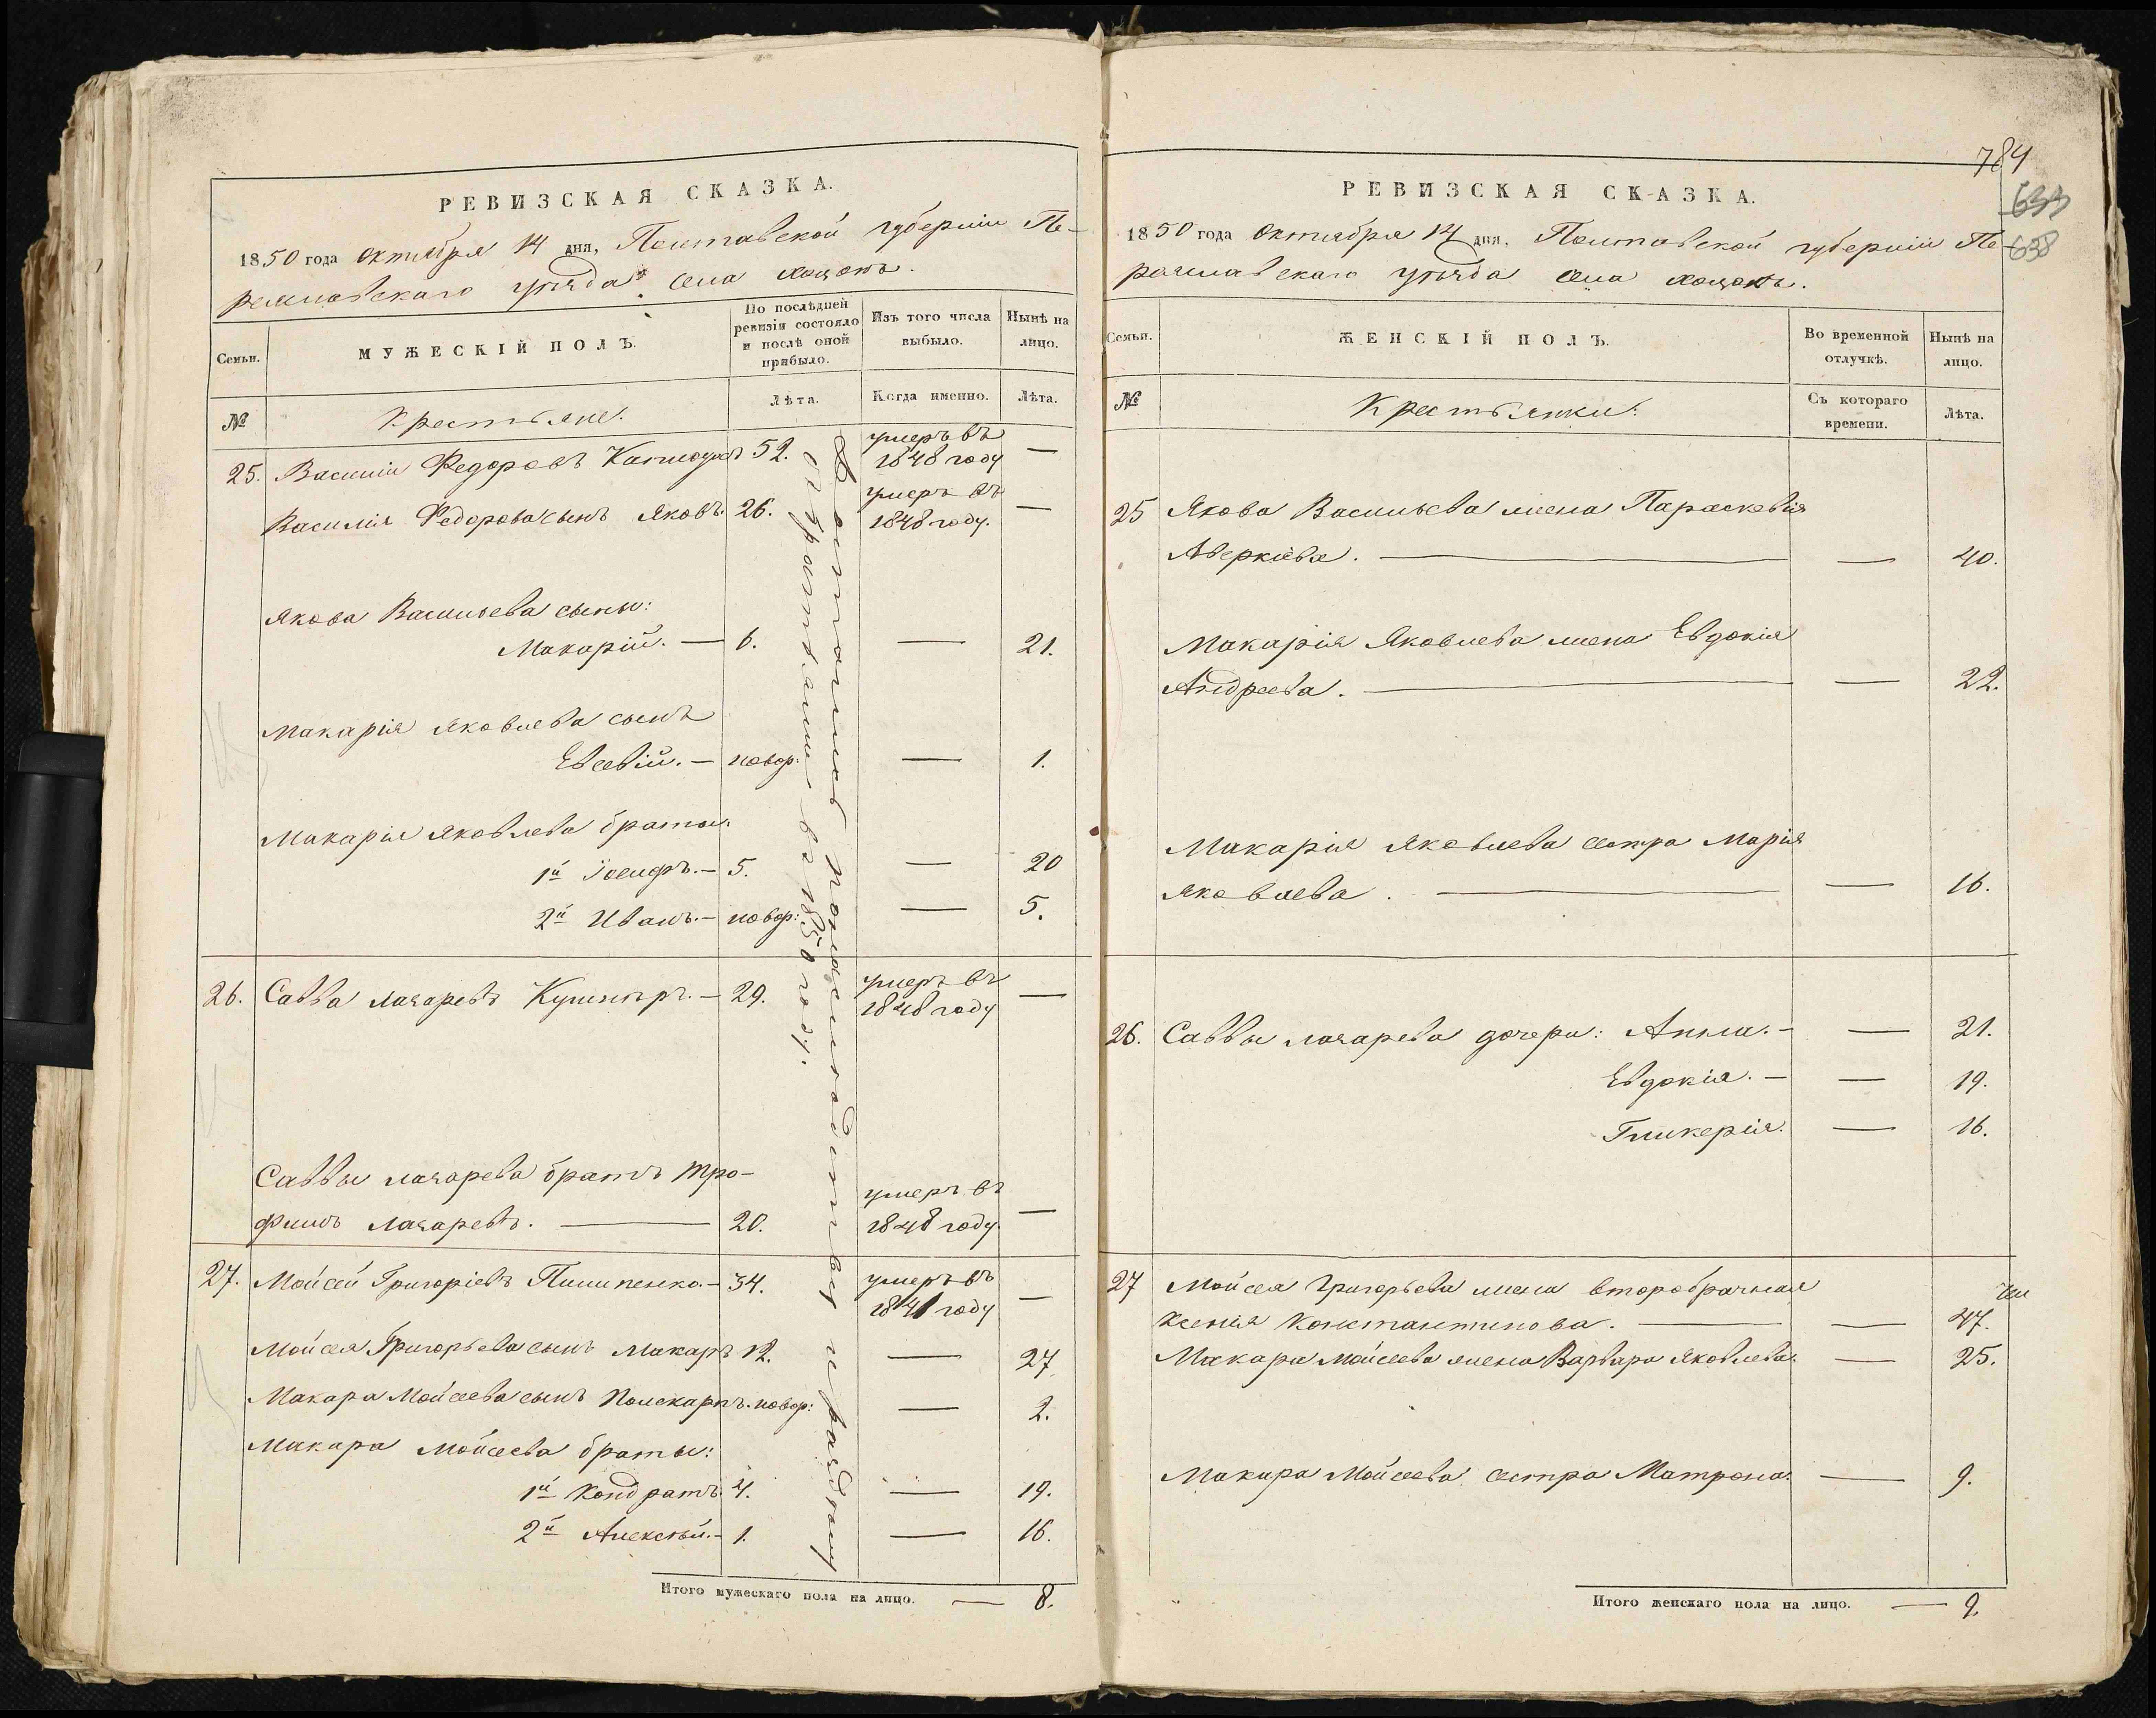 РЕВИЗСКАЯ СКАЗКА.
1850 года Октября 14 дня, Полтавской губернiи Пе-
реяславскаго уѣзда села Хоцокъ.
Семьи.
МУЖЕСКІЙ ПОЛЪ.
По послѣдней
ревизіи состояло
и послѣ оной
прибыло.
Изъ того числа
выбыло.
Нынѣ на
лицо.
№
Крестьяне.
Лѣта.
Когда именно.
Лѣта.
25. Василій Федоровъ 52. умеръ въ
1848 году —
Василія Федорова сынъ Яковъ. 26. умеръ въ
1848 году. —
Якова Васильева сынъ:
Макарій. — 6. — 21.
Макарія Яковлева сынъ
Евсевій. — новор: — 1.
Макарія Яковлева братья:
1й Іосифъ. — 5. — 20
2й Иванъ. — новор: — 5.
26. Савва Лазаревъ Кушниръ. — 29. умеръ въ
1848 году —
Саввы Лазарева братъ Тро-
фимъ Лазаревъ. — 20. умеръ въ
1848 году. —
27. Мойсей Григоріевъ Пилипенко. — 34. умеръ въ
1841 году —
Мойсея Григорьева сынъ Макаръ 12. — 27.
Макара Мойсеева сынъ Поликарпъ. новор: — 2.
Макара Мойсеева братья:
1й Кондратъ. 4. — 19.
2й Алексѣй. — 1. — 16.
Итого мужескаго пола на лицо. — 8.
въ 1850 году.
784
633
638
РЕВИЗСКАЯ СКАЗКА.
1850 года Октября 14 дня. Полтавской губерніи Пе-
реяславскаго уѣзда села Хоцокъ.
Семьи.
ЖЕНСКІЙ ПОЛЪ.
Во временной
отлучкѣ.
Нынѣ на
лицо.
№
Крестьянки:
Съ котораго
времени.
Лѣта.
25 Якова Васильева жена Параскевія
Аверкіева. — — 40.
Макарія Яковлева жена Евдокія
Андреева. — — 22.
Макарія Яковлева сестра Марія
Яковлева. — — 16.
26. Саввы Лазарева дочери: Анна. — — 21.
Евдокія. — — 19.
Гликерія. — 16.
27 Мойсея Григорьева жена второбрачная
Ксенія Константинова. — — 47.
Макара Мойсеева жена Варвара Яковлева. — 25.
Макара Мойсеева сестра Матрона. — 9.
Итого женскаго пола на лицо. — 9.